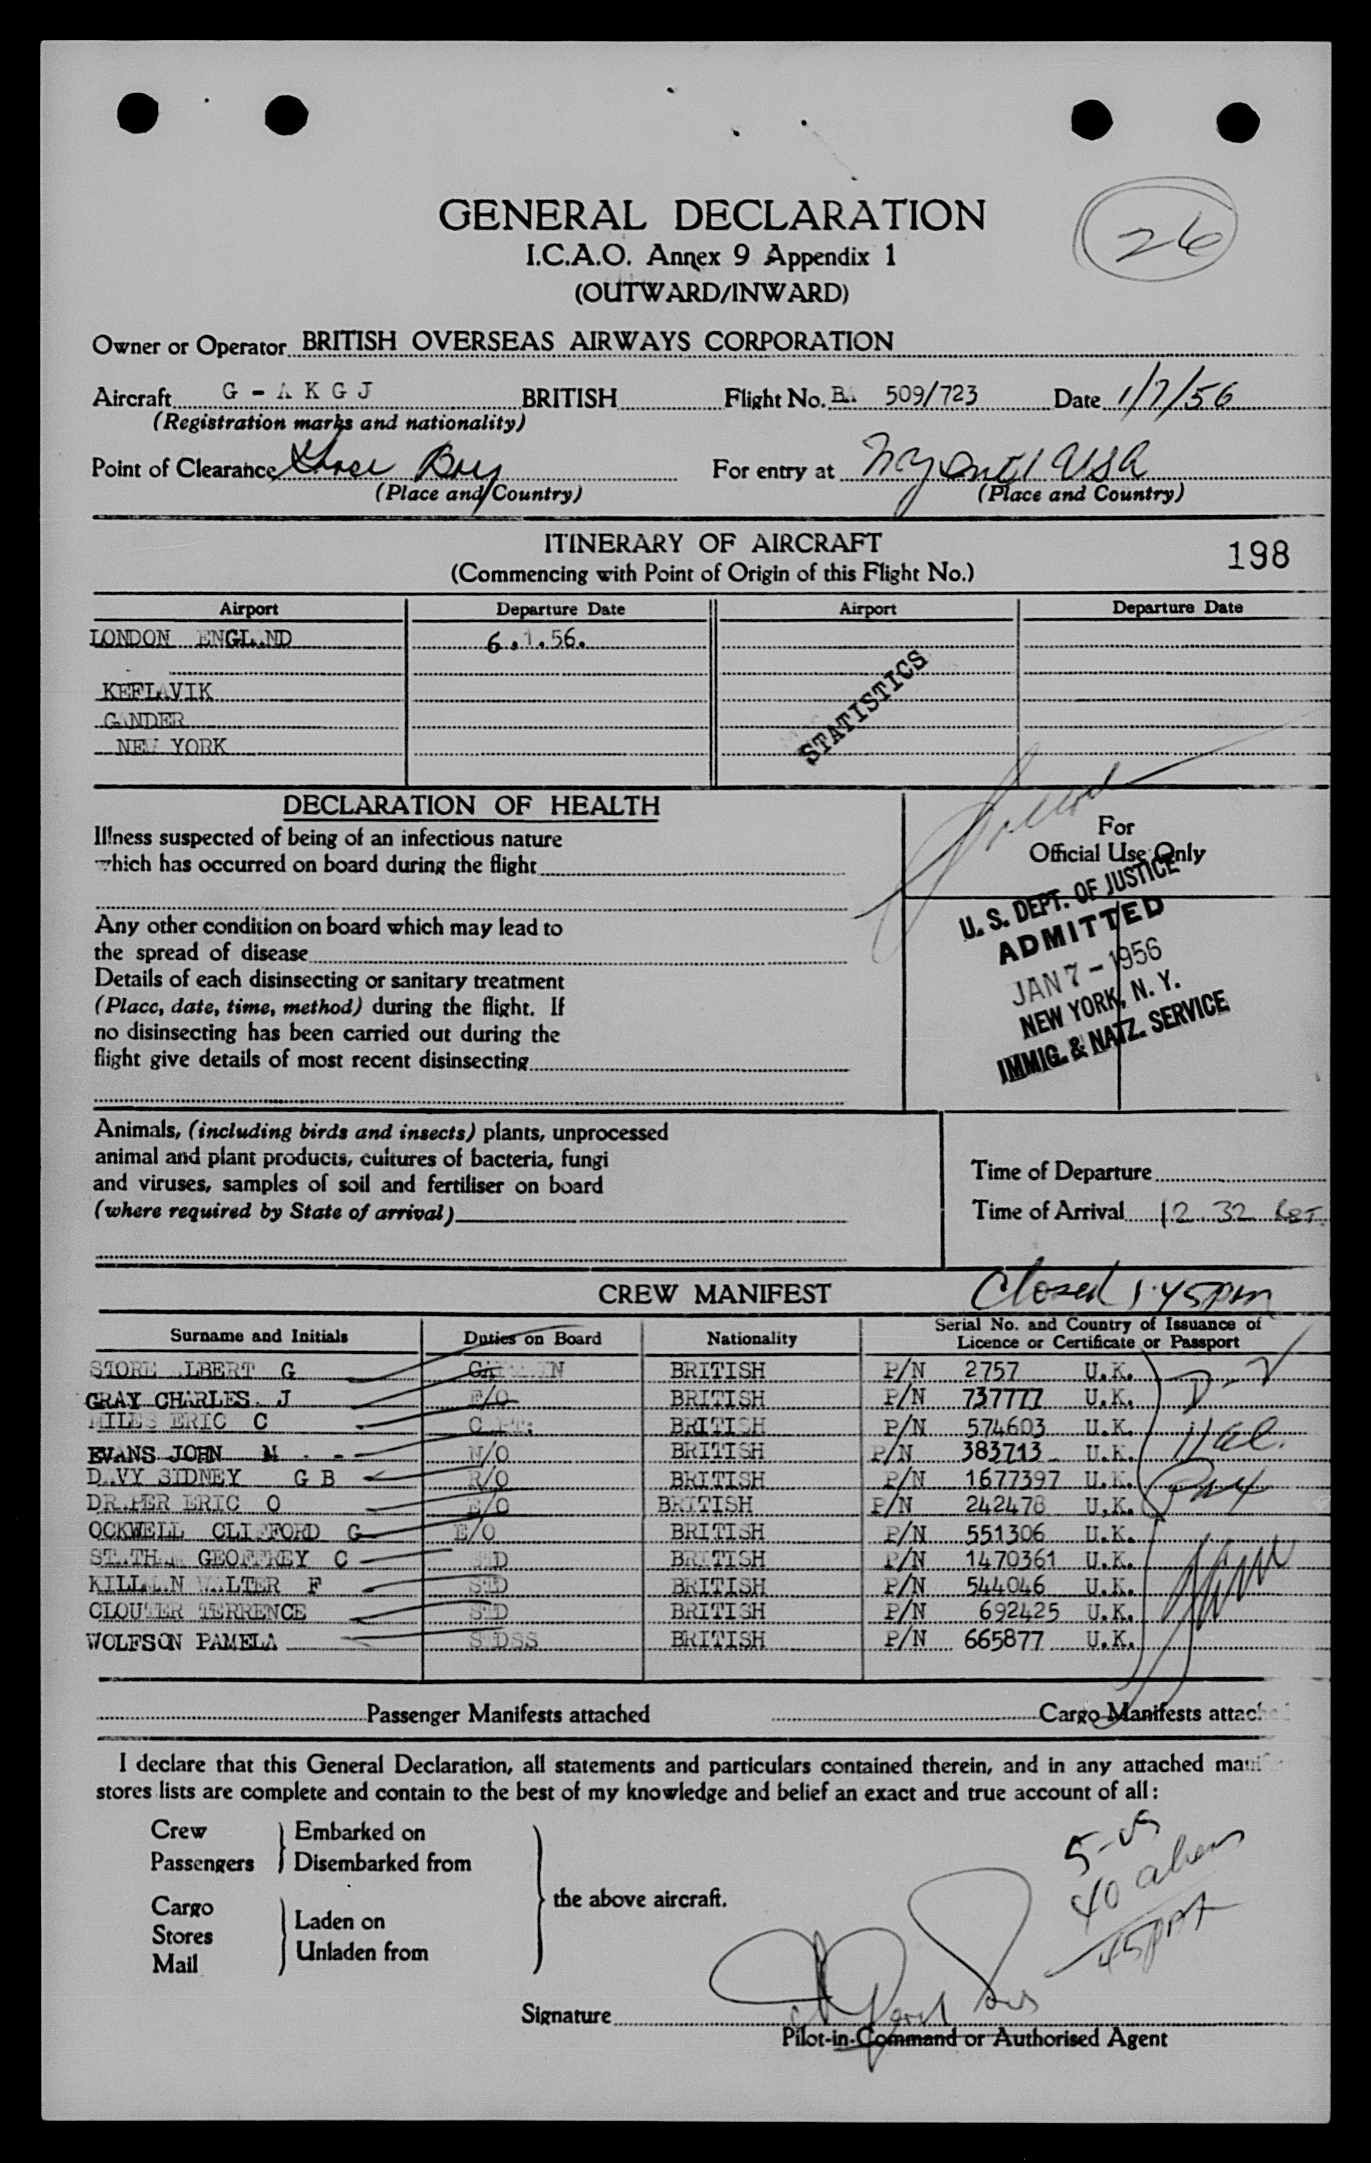 26
GENERAL DECLARATION
I.C.A.O. Annex 9 Appendix 1
(OUTWARD/INWARD)
Owner or Operator BRITISH OVERSEAS AIRWAYS CORPORATION
Aircraft G - A K G J BRITISH Flight No. BA 509/723 Date 1/7/56
(Registration marks and nationality)
Point of Clearance Goose Bay For entry at NY USA
(Place and Country) (Place and Country)
ITINERARY OF AIRCRAFT
(Commencing with Point of Origin of this Flight No.) 198
Airport Departure Date Airport Departure Date
LONDON ENGLAND 6.1.56.
KEFLAVIK
GANDER
NEW YORK
STATISTICS
DECLARATION OF HEALTH
Illness suspected of being of an infectious nature
which has occurred on board during the flight
For
Official Use Only
Any other condition on board which may lead to
the spread of disease
Details of each disinsecting or sanitary treatment
(Place, date, time, method) during the flight. If
no disinsecting has been carried out during the
flight give details of most recent disinsecting
U. S. DEPT. OF JUSTICE
ADMITTED
JAN 7 - 1956
NEW YORK, N. Y.
IMMIG. & NATZ. SERVICE
Animals, (including birds and insects) plants, unprocessed
animal and plant products, cultures of bacteria, fungi
and viruses, samples of soil and fertiliser on board
(where required by State of arrival)
Time of Departure
Time of Arrival 12 32 EST
CREW MANIFEST Closed 1.45pm
Surname and Initials Duties on Board Nationality Serial No. and Country of Issuance of
Licence or Certificate or Passport
STORE ALBERT G CAPTAIN BRITISH P/N 2757 U.K.
GRAY CHARLES J F/O BRITISH P/N 737777 U.K.
MILES ERIC C CAPT: BRITISH P/N 574603 U.K.
EVANS JOHN M - - N/O BRITISH P/N 383713 U.K.
DAVY SIDNEY G B R/O BRITISH P/N 1677397 U.K.
DRAPER ERIC O E/O BRITISH P/N 242478 U.K.
OCKWELL CLIFFORD G E/O BRITISH P/N 551306 U.K.
GEOFFREY C STD BRITISH P/N 1470361 U.K.
KILLMAN WALTER F STD BRITISH P/N 544046 U.K.
CLOUTER TERRENCE STD BRITISH P/N 692425 U.K.
WOLFSON PAMELA STDSS BRITISH P/N 665877 U.K.
Passenger Manifests attached Cargo Manifests attached
I declare that this General Declaration, all statements and particulars contained therein, and in any attached
stores lists are complete and contain to the best of my knowledge and belief an exact and true account of all:
Crew Embarked on
Passengers Disembarked from
Cargo
Stores Laden on
Mail Unladen from
the above aircraft.
5-US
40 aliens
45
Signature
Pilot-in-Command or Authorised Agent